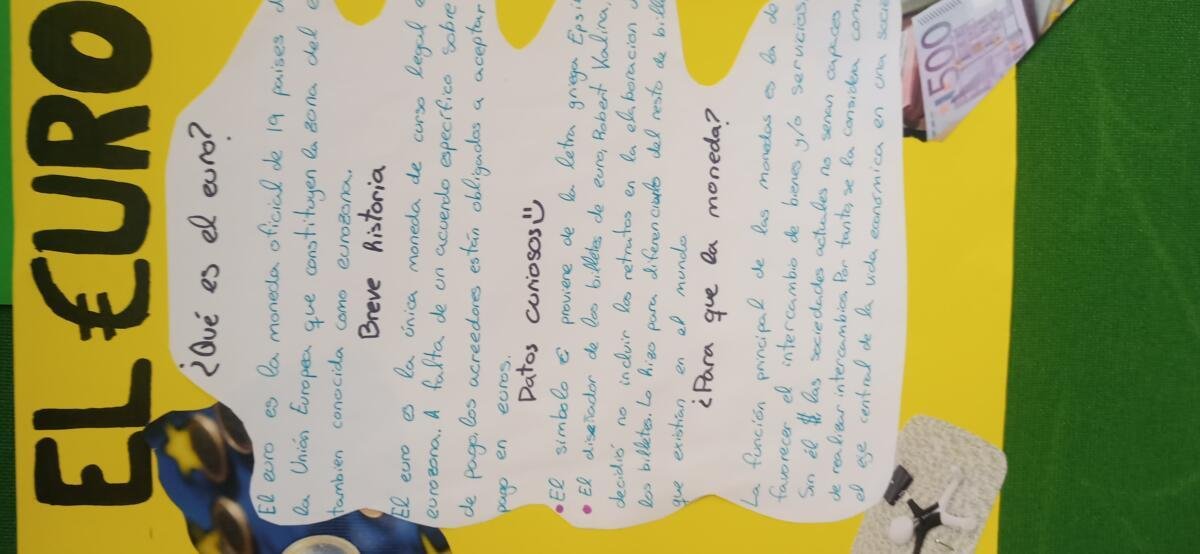 EL €URO
¿Qué es el euro?
El euro es la moneda oficial de 19 paises d
la Unión Europea que constituyen la zona del e
tambien conocida como eurozona.
Breve historia
El euro es la única moneda de curso legal e
eurozona. A falta de un acuerdo específico sobre
de pago, los acreedores están obligados a aceptar
pago en euros.
Datos curiosos
• El simbolo € proviene de la letra griega Epsi
• El diseñador de los billetes de euro, Robert Kalina,
decidió no incluir los retratos en la elaboracion d
los billetes. Lo hizo para diferenciarlo del resto de bille
que existían en el mundo
¿Para que la moneda?
La función principal de las monedas es la de
favorecer el intercambio de bienes y/o servicios,
Sin él las sociedades actuales no serian capaces
de realizar intercambios. Por tanto, se la considera com
el eje central de la vida económica en una socie
500